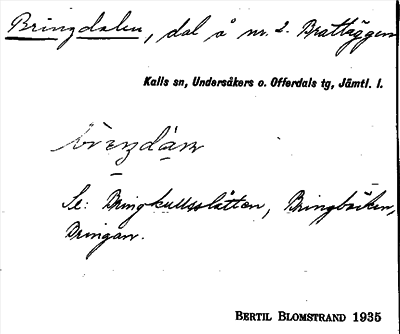 Bringdalen, dal å nr. 2. Brattäggen
Kalls sn, Undersåkers o. Offerdals tg, Jämtl. l.
Se: Bringkullsslåtten, Bringbäcken,
Bringan.
BERTIL BLOMSTRAND 1935